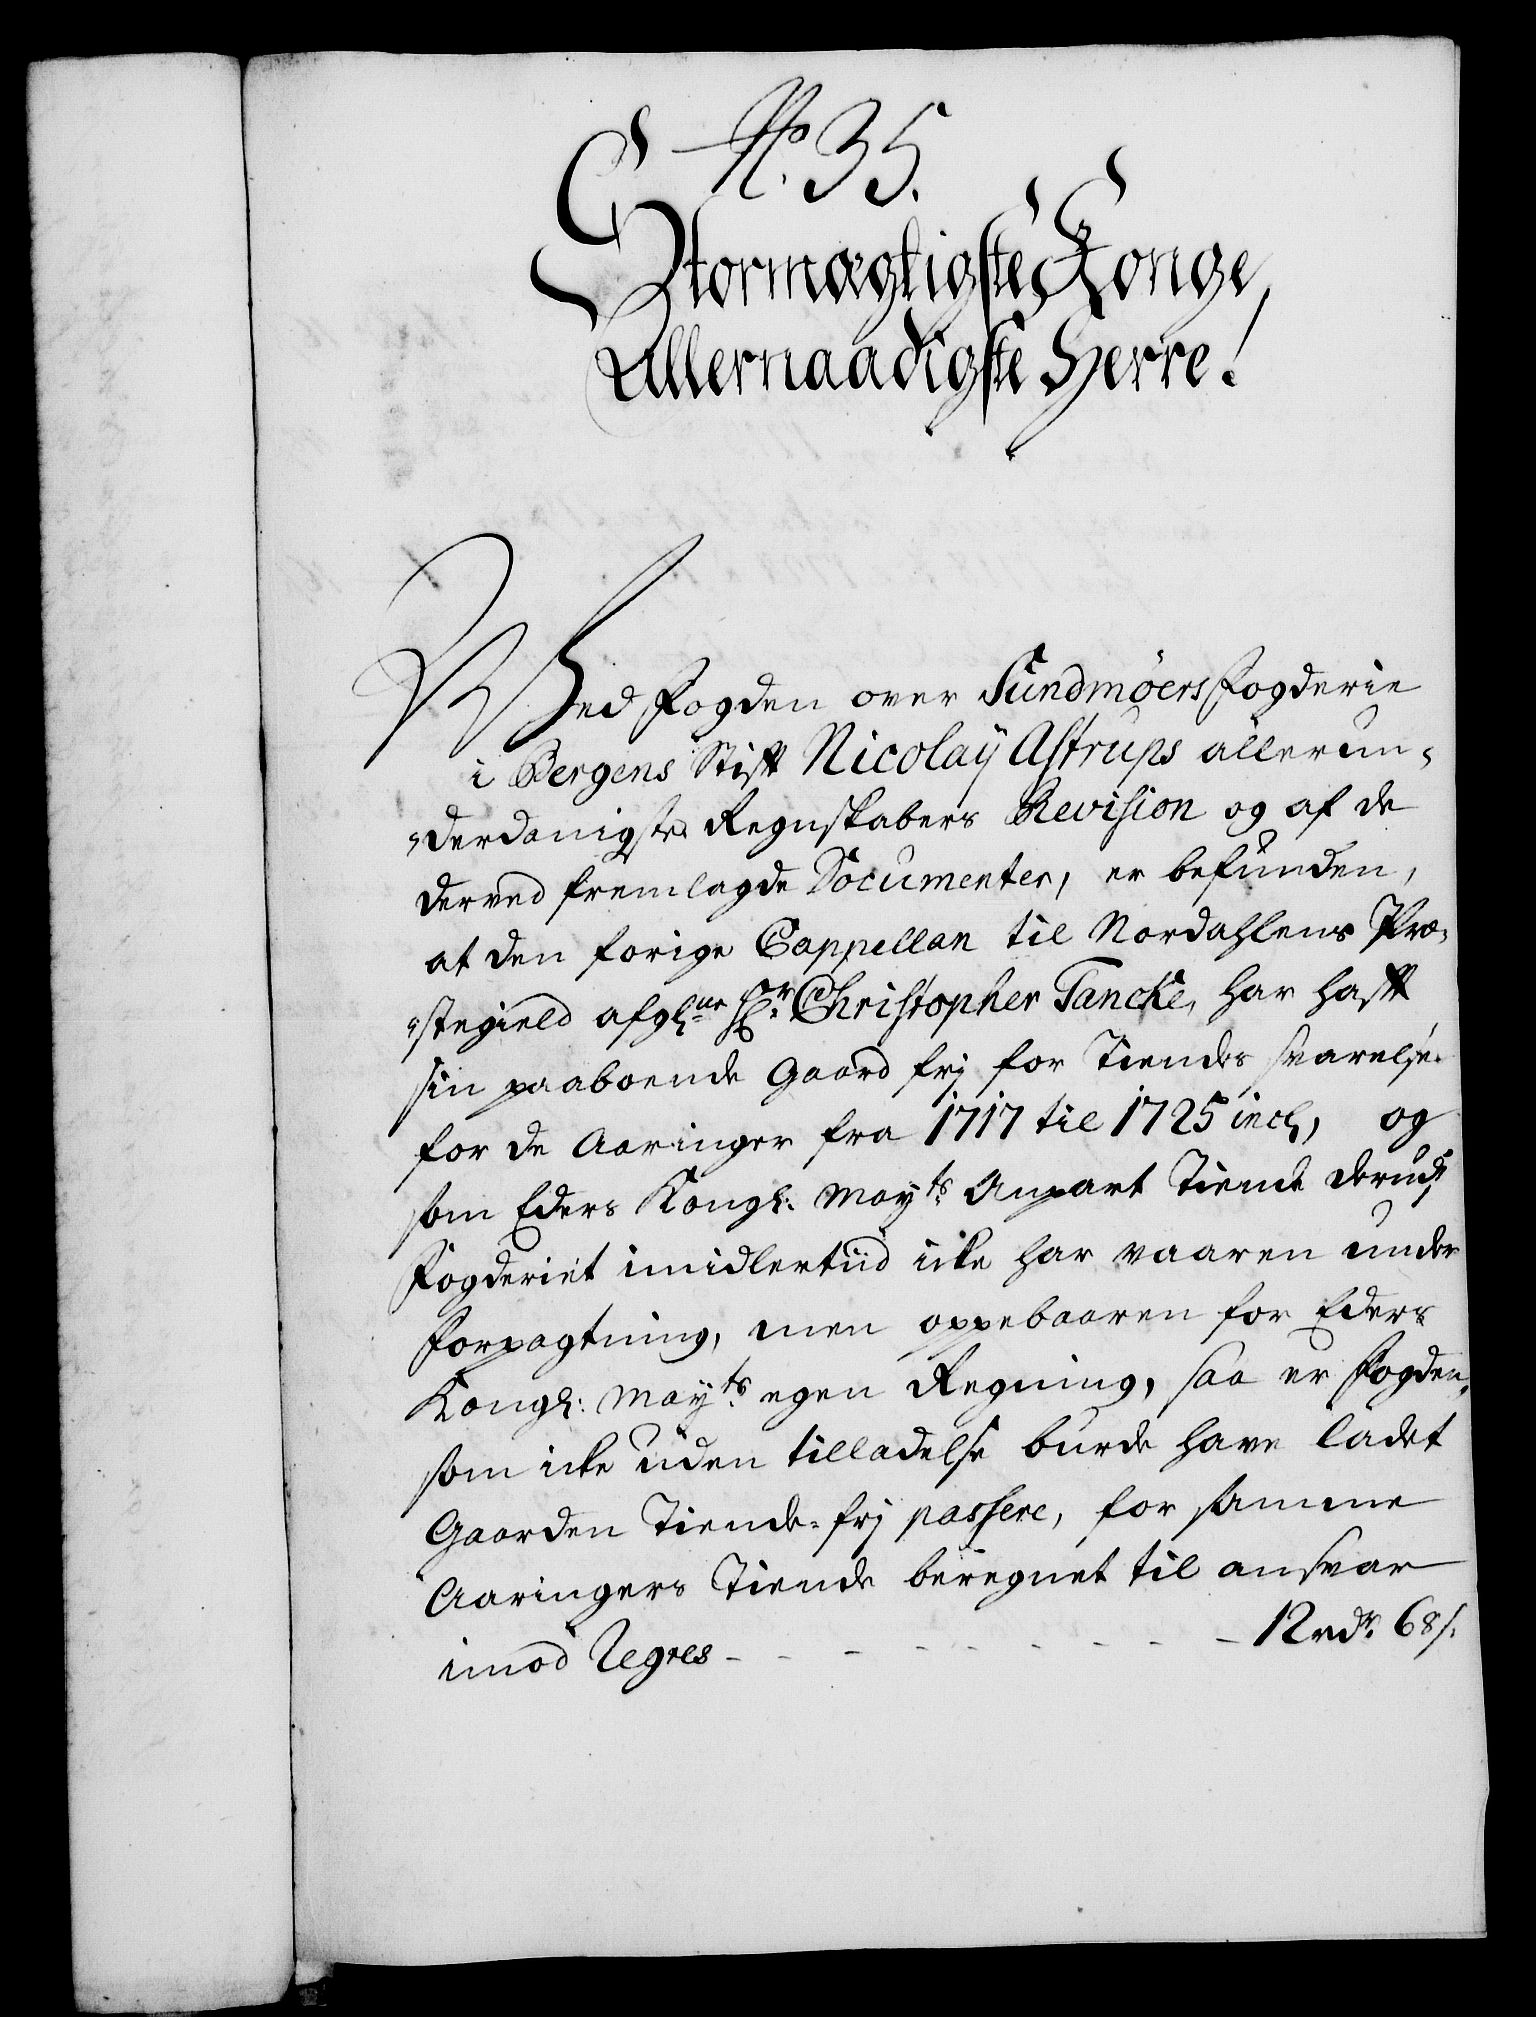 No. 35.
Stormægtigste Konge,
Allernaadigste Herre!
Ved Fogden over Sundmøers Fogderie
i Bergens Stift Nicolaÿ Astrups allerun-
derdanigste Regnskabers Revision og af de
derved fremlagde Documenter, er befunden,
at den forige Cappellan til Nordahlens Præ-
stegield afghne Hr. Christopher Tancke, har haft
sin paaboende Gaard frj for Tiendes svarelse
for de Aaringer fra 1717 til 1725 incl, og
som Eders Kongl: Mayts Anpart Tiende derudj
Fogderiet imidlertiid icke har vaaren under
Forpagtning, men oppebaaren for Eders
Kongl: Mayts egen Regning, saa er Fogden,
som icke uden tilladelse burde have ladet
Gaarden Tiende-frj passere, for samme
Aaringers Tiende beregnet til ansvar
imod Regres - - - - - - - - 12 rdr. 68 s.